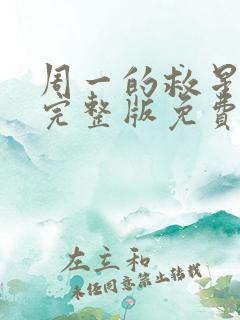 周一的救星
完整版免费
左立和
未经同意禁止转载